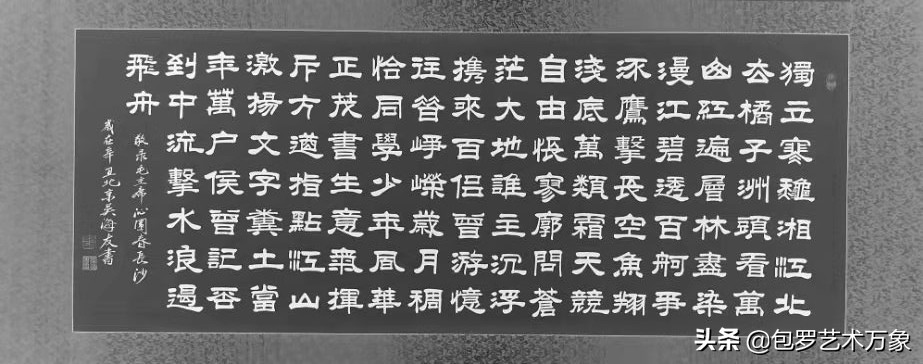 獨立寒龝湘江北
去橘子洲頭看萬
山紅遍層林盡染
漫江碧透百舸爭
流鷹擊長空魚翔
淺底萬類霜天競
自由悵寥廓問蒼
茫大地誰主沉浮
携來百侣曾游憶
往昔崢嶸歲月稠
恰同學少年風華
正茂書生意氣揮
斥方遒指點江山
激揚文字糞土當
年萬户侯曾記否
到中流擊水浪遏
飛舟
敬录毛主席沁園春長沙
歲在辛丑北京吴海友書
头条 @包罗艺术万象